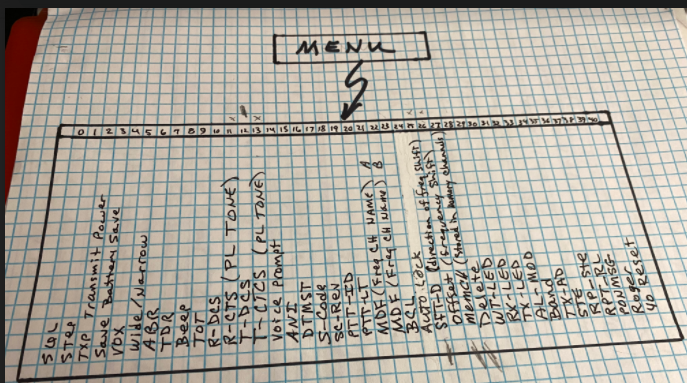 MENU
0 1 2 3 4 5 6 7 8 9 10 11 12 13 14 15 16 17 18 19 20 21 22 23 24 25 26 27 28 29 30 31 32 33 34 35 36 37 38 39 40
SQL
STEP
TXP Transmit Power
Save Battery Save
VOX
Wide/Narrow
ABR
TDR
Beep
TOT
R-DCS
R-CTS (PL TONE)
T-DCS
T-CTCS (PL TONE)
Voice Prompt
ANI
DTMST
S-Code
SC-Rev
PTT-ID
PTT-LT
MDF (Freq CH NAME) A
MDF (Freq CH Name) B
BCL
Auto Lock
SFT-D (direction of freq shift)
Offset (frequency shift)
MemCH (stored in memory channels)
Delete
WT-LED
RX-LED
TX-LED
AL-MOD
Band
TX-AD
STE STE
RPT RL
PONMSG
Roger
40 Reset